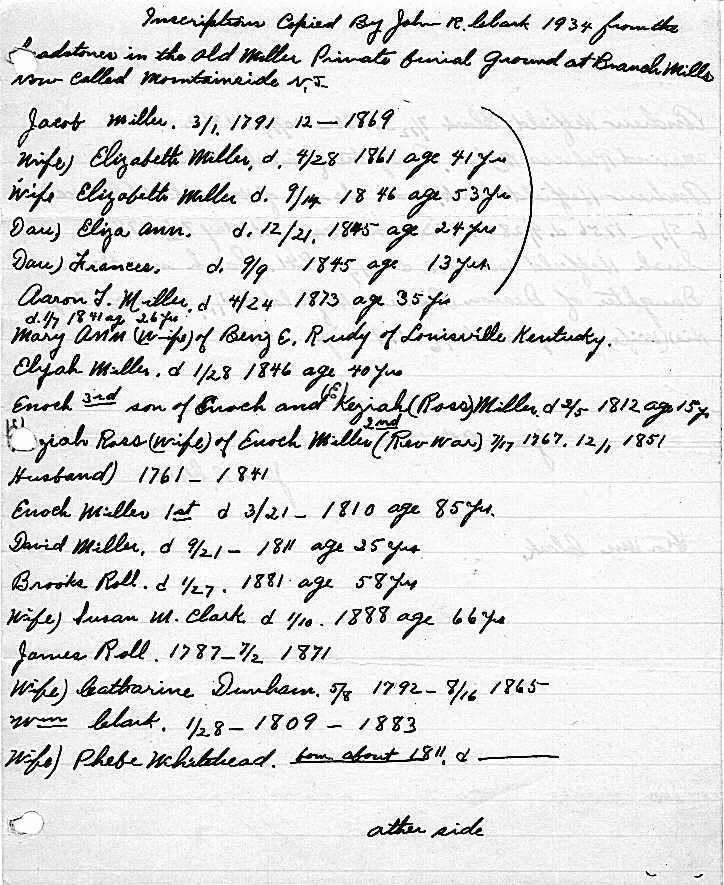 Inscription Copied By John R. Clark 1934 from the
Headstones in the old Miller Private burial Ground at Branch Mills
now called Mountainside N.J.
Jacob Miller. 3/1, 1791 12 — 1869
Wife) Elizabeth Miller, d. 4/28 1861 age 41 yrs
Wife Elizabeth Miller d. 9/14 1846 age 53 yrs
Dau) Eliza Ann. d. 12/21, 1845 age 24 yrs
Dau) Frances. d. 9/9 1845 age 13 yrs
Aaron T. Miller, d 4/24 1873 age 35 yrs
d. 1/7 1841 ag 26 yrs
Mary Ann (Wife) of Benj E. Rudy of Louisville Kentucky.
Elijah Miller. d 1/28 1846 age 40 yrs
Enoch 3rd son of Enoch and (E) Keziah (Ross) Miller, d 2/5 1812 age 15 y
ziah Ross (Wife) of Enoch Miller 2nd (Rev War) 7/17 1767. 12/1 1851
Husband) 1761 – 1841
Enoch Miller 1st d 3/21 – 1810 age 85 yrs.
David Miller. d 9/21 – 1811 age 25 yrs
Brooks Roll. d 1/27. 1881 age 58 yrs
Wife) Susan M. Clark d 1/10. 1888 age 66 yrs
James Roll. 1787 – 7/2 1871
Wife) Catharine Dunham. 5/8 1792 – 8/16 1865
Wm Clark. 1/28 – 1809 – 1883
Wife) Phebe Whitehead. born about 1811, d ———
other side